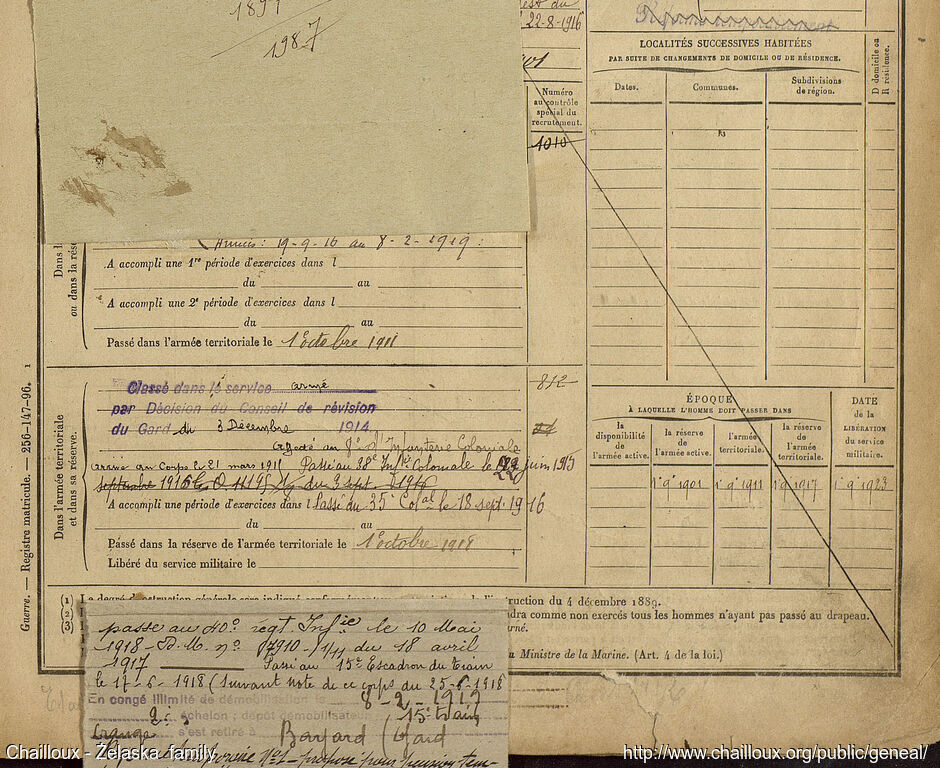 1897
1987
est du
22-8-1916
LOCALITÉS SUCCESSIVES HABITÉES
PAR SUITE DE CHANGEMENTS DE DOMICILE OU DE RÉSIDENCE.
Dates.
Communes.
Subdivisions
de région.
D domicile ou
R résidence.
Numéro
au contrôle
spécial du
recrutement.
1010
Dans l
ou dans la rése
19-9-16 au 8-2-1919.
A accompli une 1re période d'exercices dans l
du au
A accompli une 2e période d'exercices dans l
du au
Passé dans l'armée territoriale le 1 octobre 1911
Dans l'armée territoriale
et dans sa réserve.
Classé dans le service armé
par Décision du Conseil de révision
du Gard du 3 Décembre 1914.
Affecté au 9e d'Infanterie Coloniale
arrivé au Corps le 21 mars 191 Passé au 38e Inf Coloniale le 22 juin 1915
septembre 1916 du 3 sept 1916
A accompli une période d'exercices dans l Passé du 35 Cal le 18 sept 1916
du au
Passé dans la réserve de l'armée territoriale le 1 octobre 1918
Libéré du service militaire le
812
ÉPOQUE
À LAQUELLE L'HOMME DOIT PASSER DANS
DATE
de la
LIBÉRATION
du service
militaire.
la
disponibilité
de l'armée active.
la réserve
de
l'armée active.
l'armée
territoriale.
la
réserve de
l'armée
territoriale.
1 9 1901
1 9 1911
1 9 1917
1 9 1923
Guerre. — Registre matricule. — 256-147-96. 1
(1) Le degré d'instruction générale sera indiqué l'instruction du 4 décembre 1889.
(2) ndra comme non exercés tous les hommes n'ayant pas passé au drapeau.
(3) rné.
u Ministre de la Marine. (Art. 4 de la loi.)
passé au 40e regt. Infie le 10 Mai
1918 - D.M. no 17910-1/11 du 18 avril
1917 Passé au 15e Escadron du train
le 17-6-1918 (suivant note de ce corps du 25-6-1918
En congé illimité de démobilisation 8-2-1919
2e échelon; dépôt démobilisateur 15e train
s'est retiré à Barjard (Gard
proposé pour pension tem-
Chailloux - Zelaska family
http://www.chailloux.org/public/geneal/